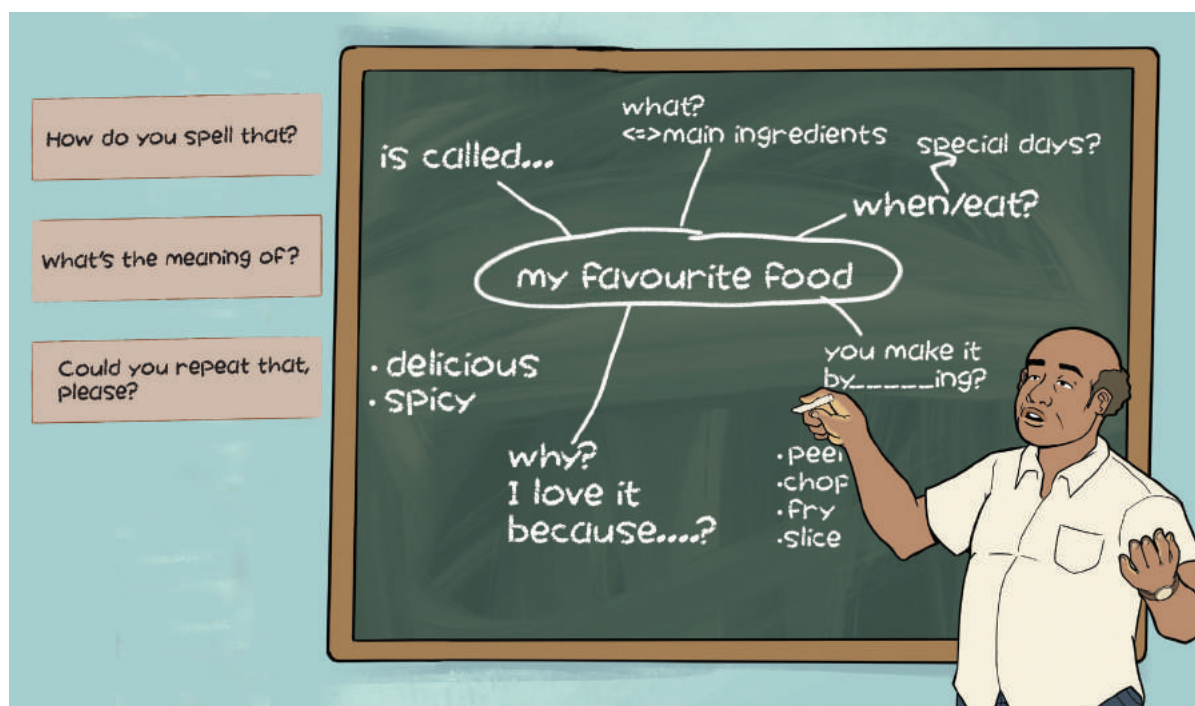 How do you spell that?
What's the meaning of?
Could you repeat that,
please?
is called...
what?
<=>main ingredients
special days?
when/eat?
my favourite food
• delicious
• spicy
why?
I love it
because....?
you make it
by_____ing?
•peel
•chop
•fry
•slice